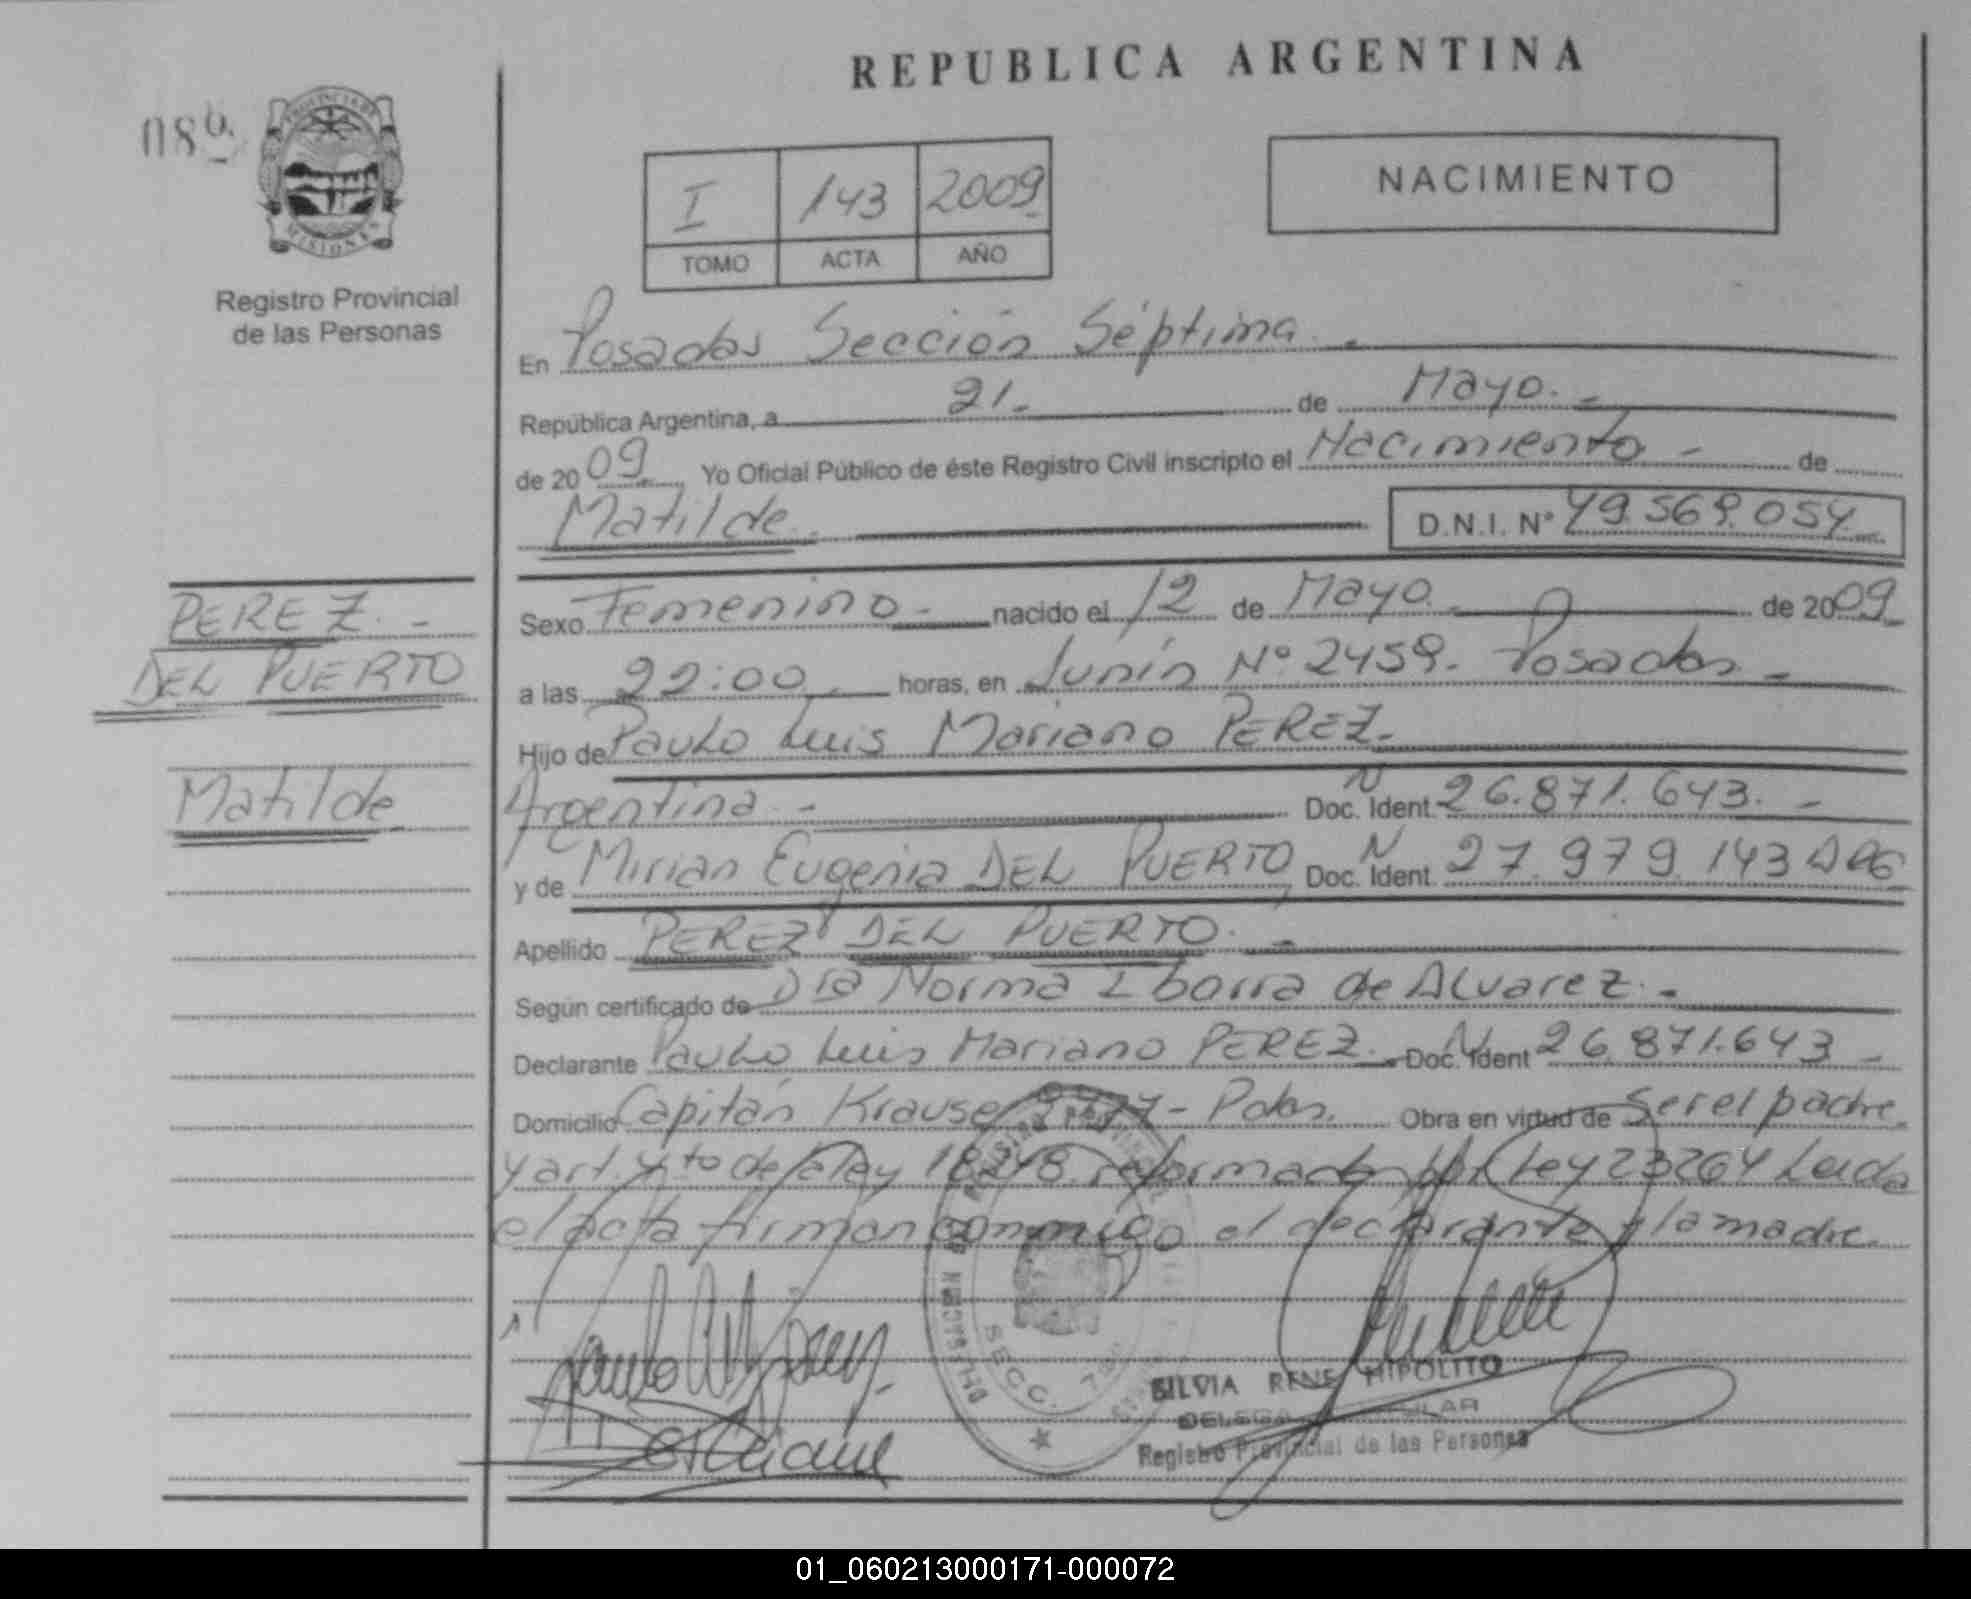 REPUBLICA ARGENTINA
086
PROVINCIA DE
MISIONES
Registro Provincial
de las Personas
I 143 2009
TOMO ACTA AÑO
NACIMIENTO
En Posadas Sección Séptima.-
República Argentina, a 21.- de Mayo.-
de 2009 Yo Oficial Público de éste Registro Civil inscripto el Nacimiento - de
Matilde. D.N.I. Nº 49.569.054
PEREZ.-
DEL PUERTO
Matilde
Sexo Femenino.- nacido el 12 de Mayo de 2009
a las 22:00 horas, en Junín Nº 2459. Posadas -
Hijo de Paulo Luis Mariano PEREZ.-
Argentina.- Doc. N Ident. 26.871.643.-
y de Mirian Eugenia DEL PUERTO, Doc. N Ident. 27.979.143 ARG
Apellido PEREZ DEL PUERTO.-
Según certificado de Dra Norma Ibarra de Alvarez.-
Declarante Paulo Luis Mariano PEREZ.- Doc. N Ident 26.871.643 -
Domicilio Capitán Krause - Pdas. Obra en virtud de ser el padre
y art. 4to de la ley 18248 reformado por Ley 23264 Leida
el acta firman conmigo el declarante y la madre.
SECC. 7
SILVIA RENE HIPOLITO
Registro Provincial de las Personas
01_060213000171-000072